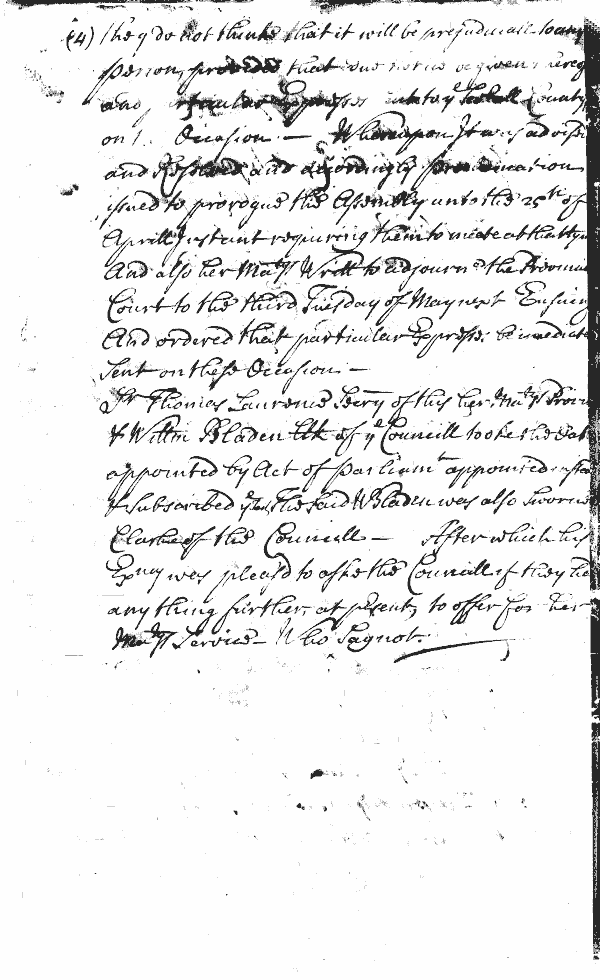 (4) they do not thinke that it will be prejudiciall to any
person, provided that due notice be given thereof
and Expresses County
on Occasion — Whereupon It was advised
and Resolved and accordingly
issued to prorogue the Assembly unto the 25th of
Aprill Instant requiring them to meete at that tyme
And also her Matys Writt to adjourne the Provinciall
Court to the third Tuesday of May next Ensuing
And ordered that particular Expresses be imediately
sent on these Occasions —
Sr Thomas Laurence Secry of this her Matys Province
& Willm Bladen Clk of ye Councill tooke the Oath
appointed by Act of Parliamt appointed
& Subscribed ye Test the said W Bladen was also Sworne
Clarke of the Councill — After which his
Excy was pleasd to aske the Councill if they had
any thing further at psent, to offer for her
Matys Service — Who Say not